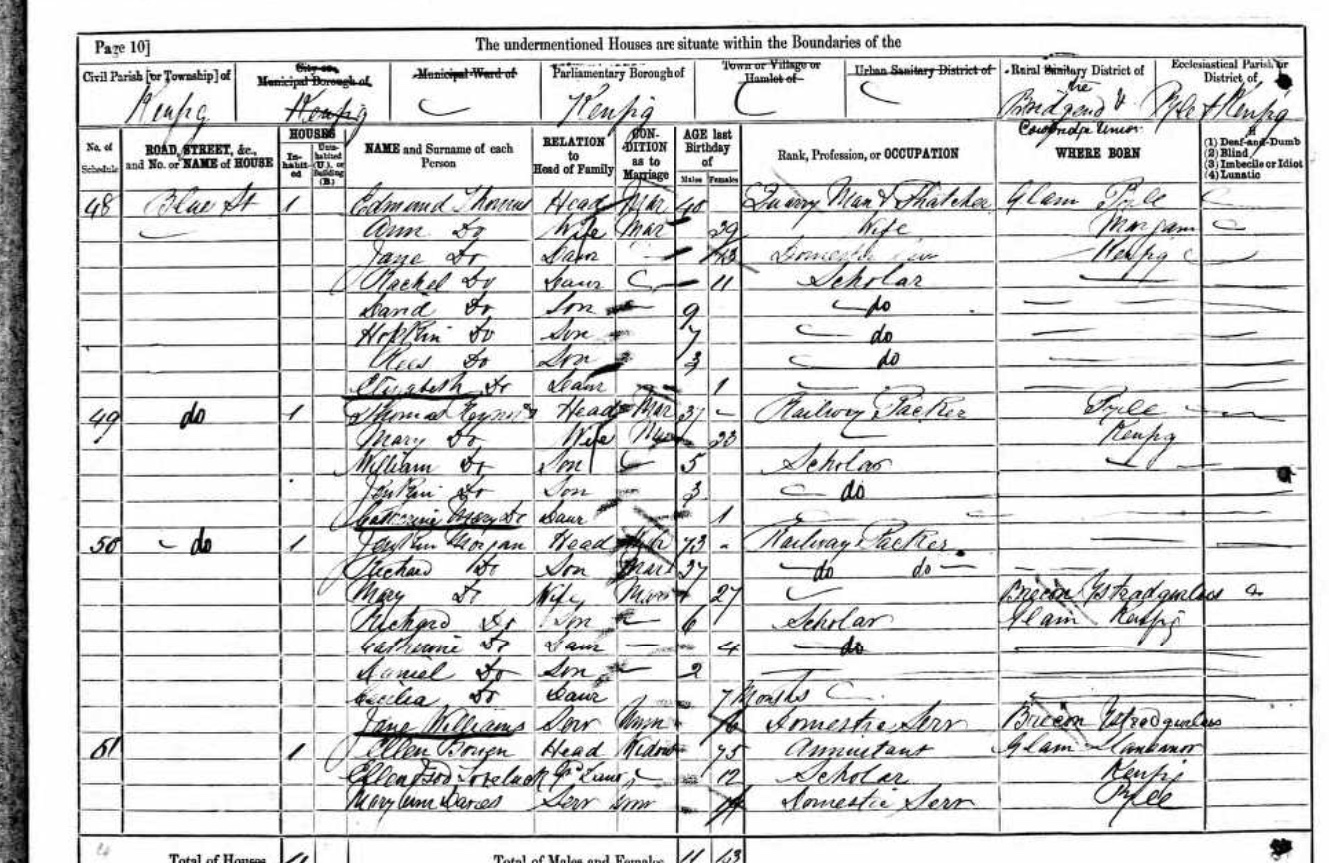 Page 10]
The undermentioned Houses are situate within the Boundaries of the
Civil Parish [or Township] of
City or Municipal Borough of
Municipal Ward of
Parliamentary Borough of
Town or Village or Hamlet of
Urban Sanitary District of
Rural Sanitary District of
Ecclesiastical Parish or District of
Kenfig Kenfig Kenfig Bridgend & the Cowbridge Union Pyle & Kenfig
No. of Schedule
ROAD, STREET, &c., and No. or NAME of HOUSE
HOUSES
Inhabited
Uninhabited (U.), or Building (B.)
NAME and Surname of each Person
RELATION to Head of Family
CONDITION as to Marriage
AGE last Birthday of
Males Females
Rank, Profession, or OCCUPATION
WHERE BORN
(1) Deaf-and-Dumb
(2) Blind
(3) Imbecile or Idiot
(4) Lunatic
48 Blue St 1 Edmund Thomas Head Mar 40 Quarry Man & Thatcher Glam Pyle
Ann Do Wife Mar 39 Wife Morgam
Jane Do Daur Domestic Kenfig
Rachel Do Daur 11 Scholar
David Do Son 9 do
Hopkin Do Son 7 do
Rees Do Son 3 do
Elizabeth Do Daur 1
49 do 1 Thomas Head Mar 37 Railway Packer Pyle
Mary Do Wife Mar 33 Kenfig
William Do Son 5 Scholar
Jenkin Do Son 3 do
Catherine Mary Do Daur 1
50 do 1 Jenkin Morgan Head 73 Railway Packer
Richard Do Son Mar 37 do do
Mary Do Wife Mar 27 Brecon Ystradgunlais
Richard Do Son 6 Scholar Glam Kenfig
Catherine Do Daur 4 do
Daniel Do Son 2
Cecilia Do Daur 7 Months
Jane Williams Serv Unm 16 Domestic Serv Brecon Ystradgunlais
51 1 Ellen Bowen Head Widow 75 Annuitant Glam
Ellen Loveluck Gd Daur 12 Scholar Kenfig
Mary Ann Davies Serv Unm Domestic Serv Pyle
Total of Houses
Total of Males and Females 11 13